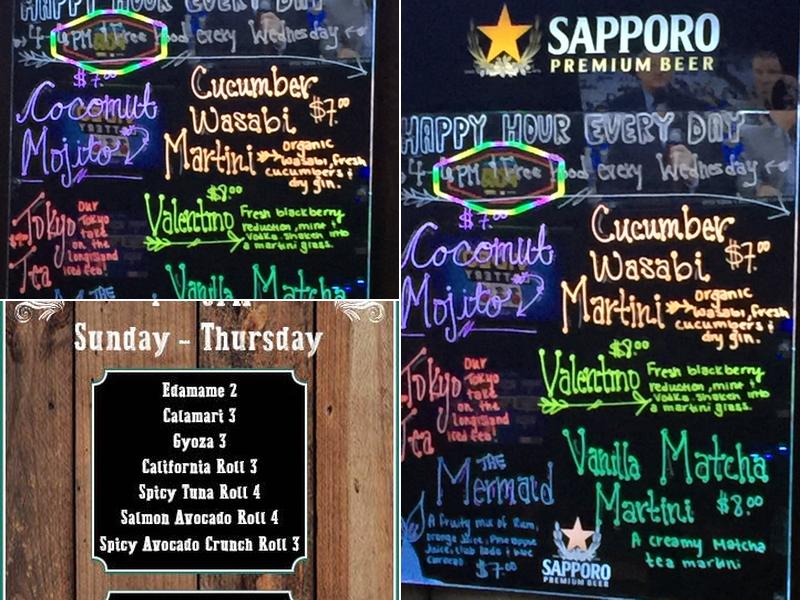 HAPPY HOUR EVERY DAY
4-6PM Free Food every Wednesday
$7.00
Coconut
Mojito
Cucumber
Wasabi $7.00
Martini organic
wasabi, fresh
cucumbers &
dry gin.
Tokyo
Tea
Our
Tokyo
take
on the
Longisland
iced tea!
$8.00
Valentino
Fresh blackberry
reduction, mint &
vodka shaken into
a martini glass.
Vanilla Matcha
THE
Sunday - Thursday
Edamame 2
Calamari 3
Gyoza 3
California Roll 3
Spicy Tuna Roll 4
Salmon Avocado Roll 4
Spicy Avocado Crunch Roll 3
SAPPORO
PREMIUM BEER
HAPPY HOUR EVERY DAY
4-6PM Free Food every Wednesday
$7.00
Coconut
Mojito
Cucumber
Wasabi $7.00
Martini organic
wasabi, fresh
cucumbers &
dry gin.
Tokyo
Tea
Our
Tokyo
take
on the
Longisland
iced tea!
$8.00
Valentino
Fresh blackberry
reduction, mint &
vodka shaken into
a martini glass.
THE
Mermaid
A fruity mix of Rum,
orange juice, pineapple
juice, club soda & blue
curacao
$7.00
Vanilla Matcha
Martini $8.00
A creamy Matcha
tea martini
SAPPORO
PREMIUM BEER